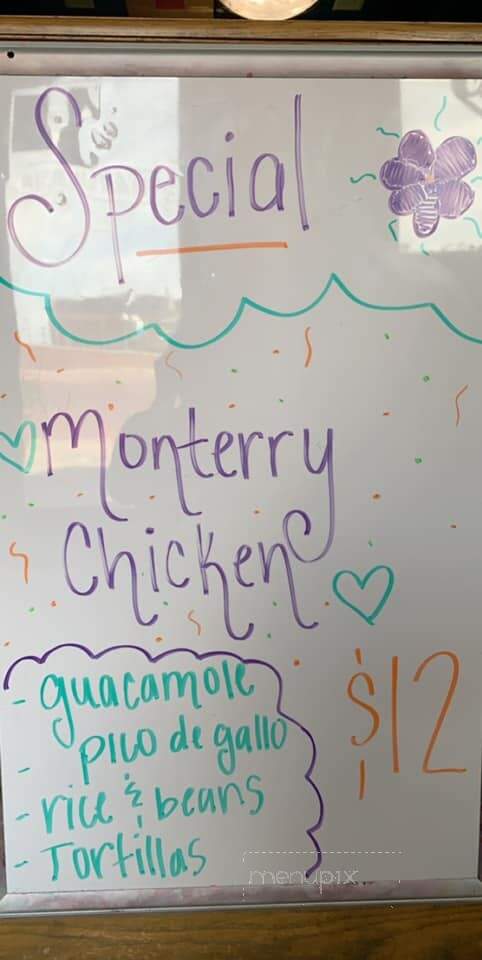 Special
Monterry
Chicken
$12
- guacamole
- pico de gallo
- rice & beans
- Tortillas
menupix